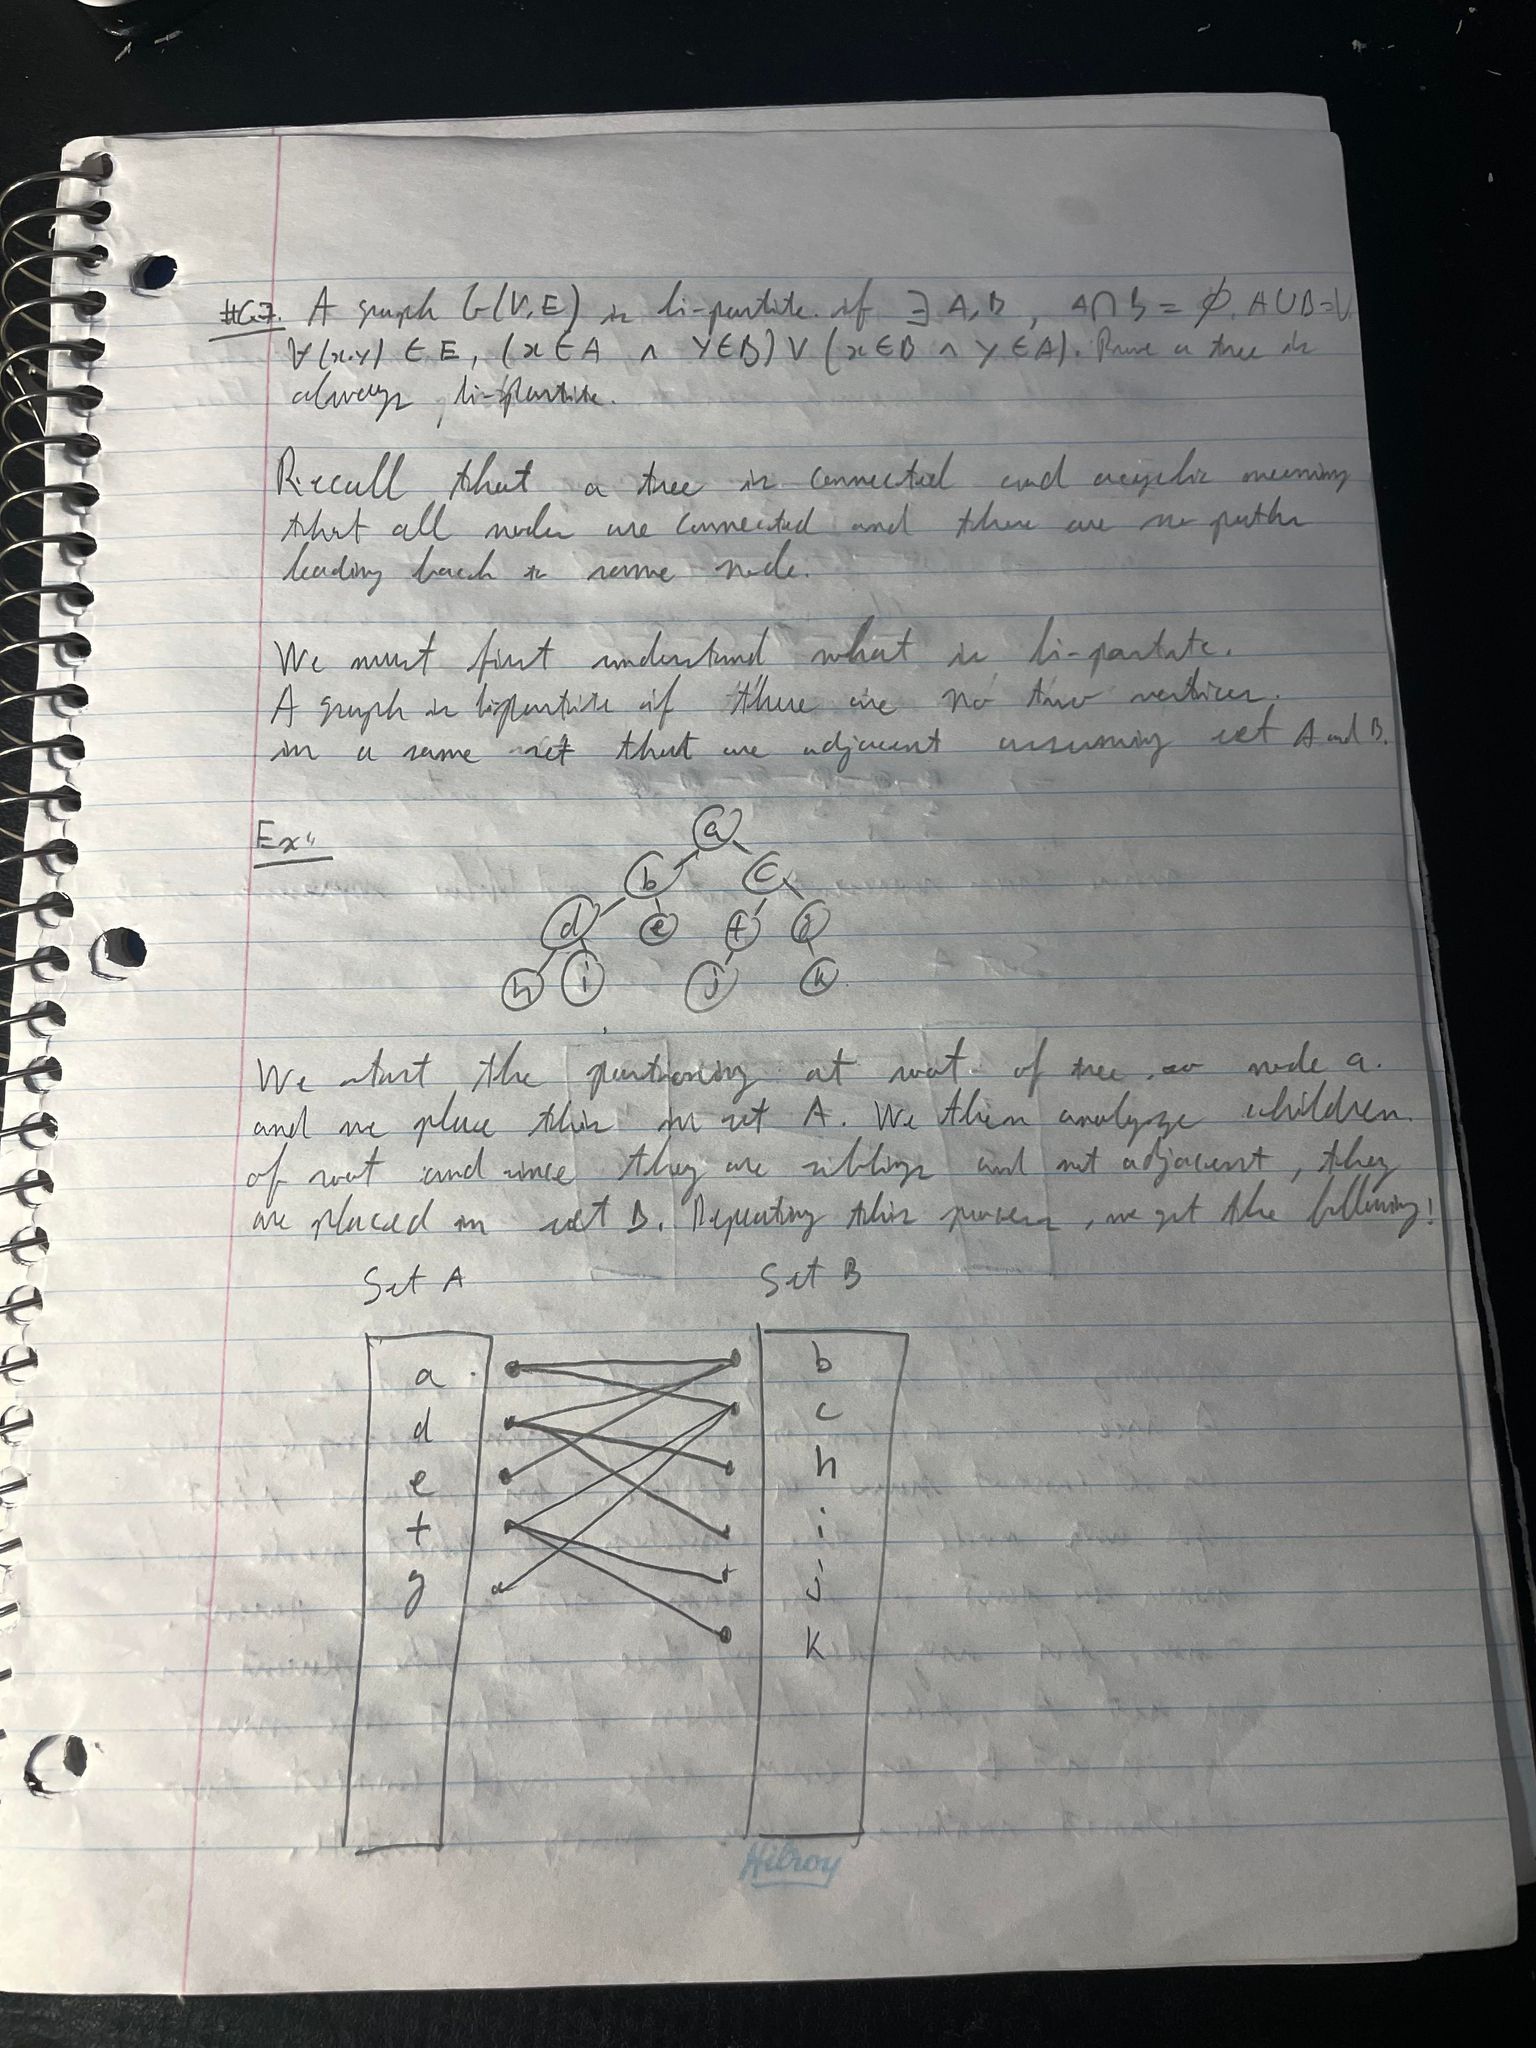 #G7. A graph G(V,E) is bi-partite if ∃ A,B, A∩B = ∅, A∪B=V,
∀(x,y) ∈ E, (x∈A ∧ y∈B) ∨ (x∈B ∧ y∈A). Prove a tree is
always bi-partite.
Recall that a tree is connected and acyclic meaning
that all nodes are connected and there are no paths
leading back to same node.
We must first understand what is bi-partate.
A graph is bipartite if there are no two vertices
in a same set that are adjacent assuming set A and B.
Ex:
a
b c
d e f g
h i j k
We start the partioning at root of tree so node a.
and we place this in set A. We then analyze children
of root and since they are siblings and not adjacent, they
are placed in set B. Repeating this process, we get the following!
Set A Set B
a b
d c
e h
f i
g j
k
Hilroy